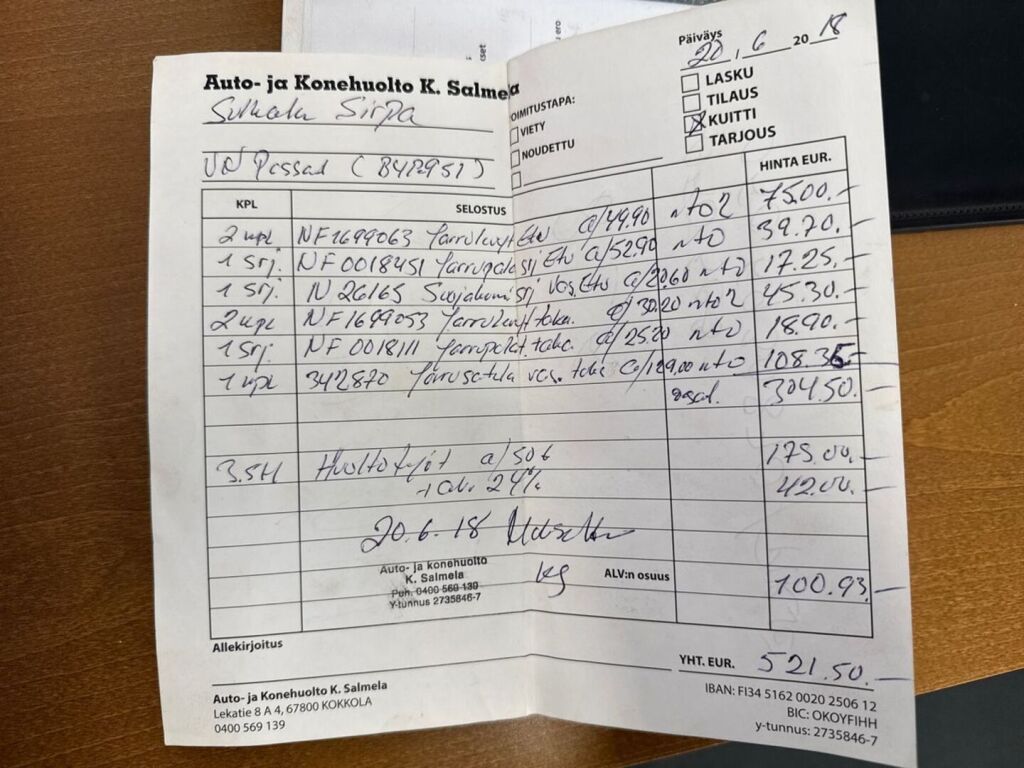 Auto- ja Konehuolto K. Salmela
Sirpa
VW Passat (
Päiväys
20, 6 20 18
LASKU
TILAUS
KUITTI
TARJOUS
OIMITUSTAPA:
VIETY
NOUDETTU
KPL SELOSTUS HINTA EUR.
2 kpl NF1699063 Jarrulevyt Etu a/49.90 nto 2 75.00.-
1 srj. NF 0018451 Jarrupalasrj Etu a/52.90 nto 39.70.-
1 srj. N 26165 srj vas. Etu a/20.60 nto 17.25.-
2 kpl NF1699053 Jarrulevyt taka. a/30.20 nto 2 45.30.-
1 srj. NF 0018111 Jarrupalat. taka. a/25.20 nto 18.90.-
1 kpl 342870 Jarrusatula vas. taka a/129.00 nto 108.35-
304.50.-
3.5H Huoltotyöt a/50 € 175.00.-
+ alv. 24% 42.00.-
20.6.18
Auto- ja konehuolto
K. Salmela
Puh. 0400 569 139
Y-tunnus 2735846-7
KS
ALV:n osuus 100.93.-
Allekirjoitus
YHT. EUR. 521.50.-
Auto- ja Konehuolto K. Salmela
Lekatie 8 A 4, 67800 KOKKOLA
0400 569 139
IBAN: FI34 5162 0020 2506 12
BIC: OKOYFIHH
y-tunnus: 2735846-7